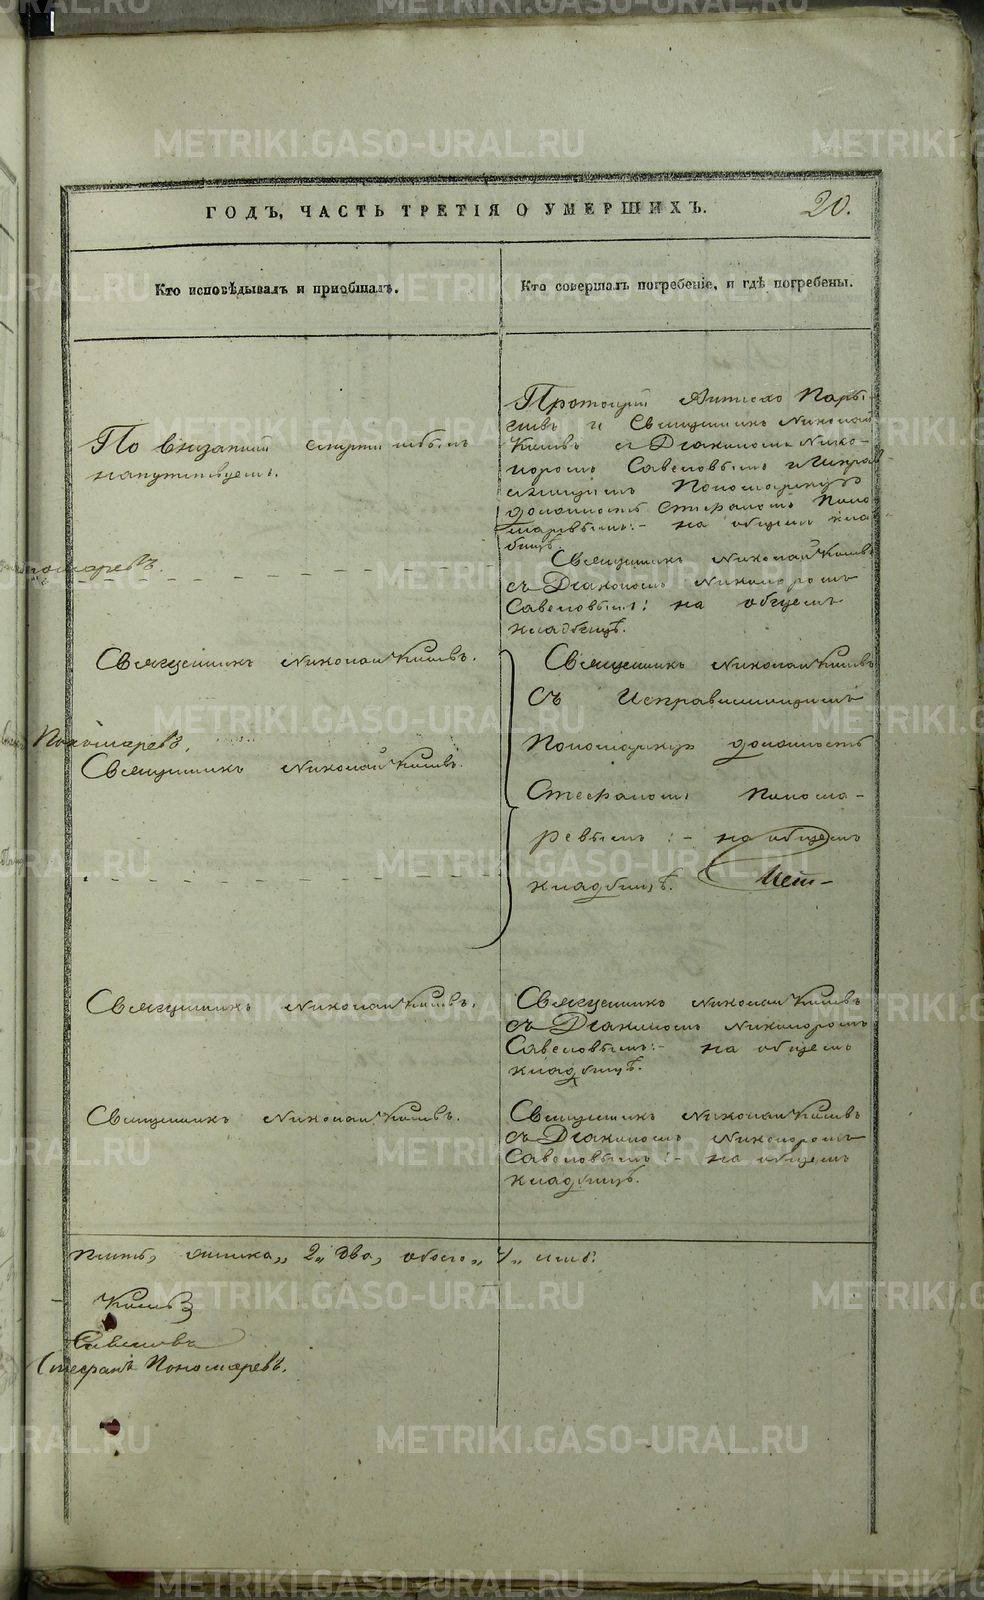 ГОДЪ, ЧАСТЬ ТРЕТІЯ О УМЕРШИХЪ.
20.
Кто исповѣдывалъ и пріобщалъ.
Кто совершалъ погребеніе, и гдѣ погребены.
По внѣзапной смерти небылъ
напутствуемъ.
Протоіерей
и Священникъ Николай
съ Діакономъ Нико-
норомъ Савеловымъ и Исправ
ляющимъ Пономарскую
должность Стефаномъ Поно
маревымъ:- на общемъ кла
бищѣ.
Священникъ Николай
съ Діакономъ Никоноромъ
Савеловымъ: на общемъ
кладбищѣ.
Священникъ Николай
Священникъ Николай
съ Исправляющимъ
Пономарскую должность
Стефаномъ Понома-
ревымъ :- на общемъ
кладбищѣ.
Пономаревъ.
Священникъ Николай
Священникъ Николай
Священникъ Николай
съ Діакономъ Никоноромъ
Савеловымъ:- на общемъ
кладбищѣ.
Священникъ Николай
Священникъ Николай
съ Діакономъ Никоноромъ
Савеловымъ:- на общемъ
кладбищѣ.
2, два, обоего
Савеловъ
Стефанъ Пономаревъ.
METRIKI.GASO-URAL.RU